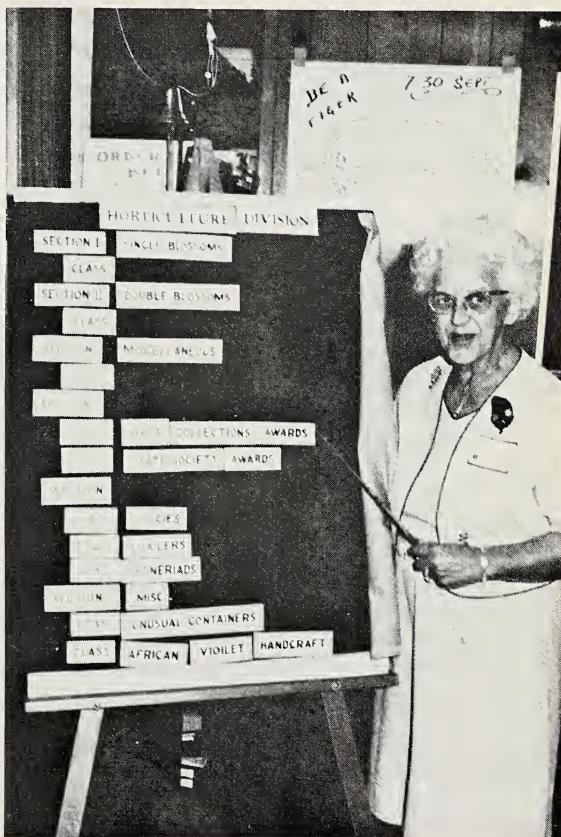 BE A
TIGER
7 30 SEPT
ORDER
HORTICULTURE DIVISION
SECTION I SINGLE BLOSSOMS
CLASS
SECTION II DOUBLE BLOSSOMS
CLASS
SECTION MISCELLANEOUS
SECTION
COLLECTIONS AWARDS
SOCIETY AWARDS
SECTION
CIES
TRAILERS
NERIADS
SECTION MISC
CLASS UNUSUAL CONTAINERS
CLASS AFRICAN VIOILET HANDCRAFT